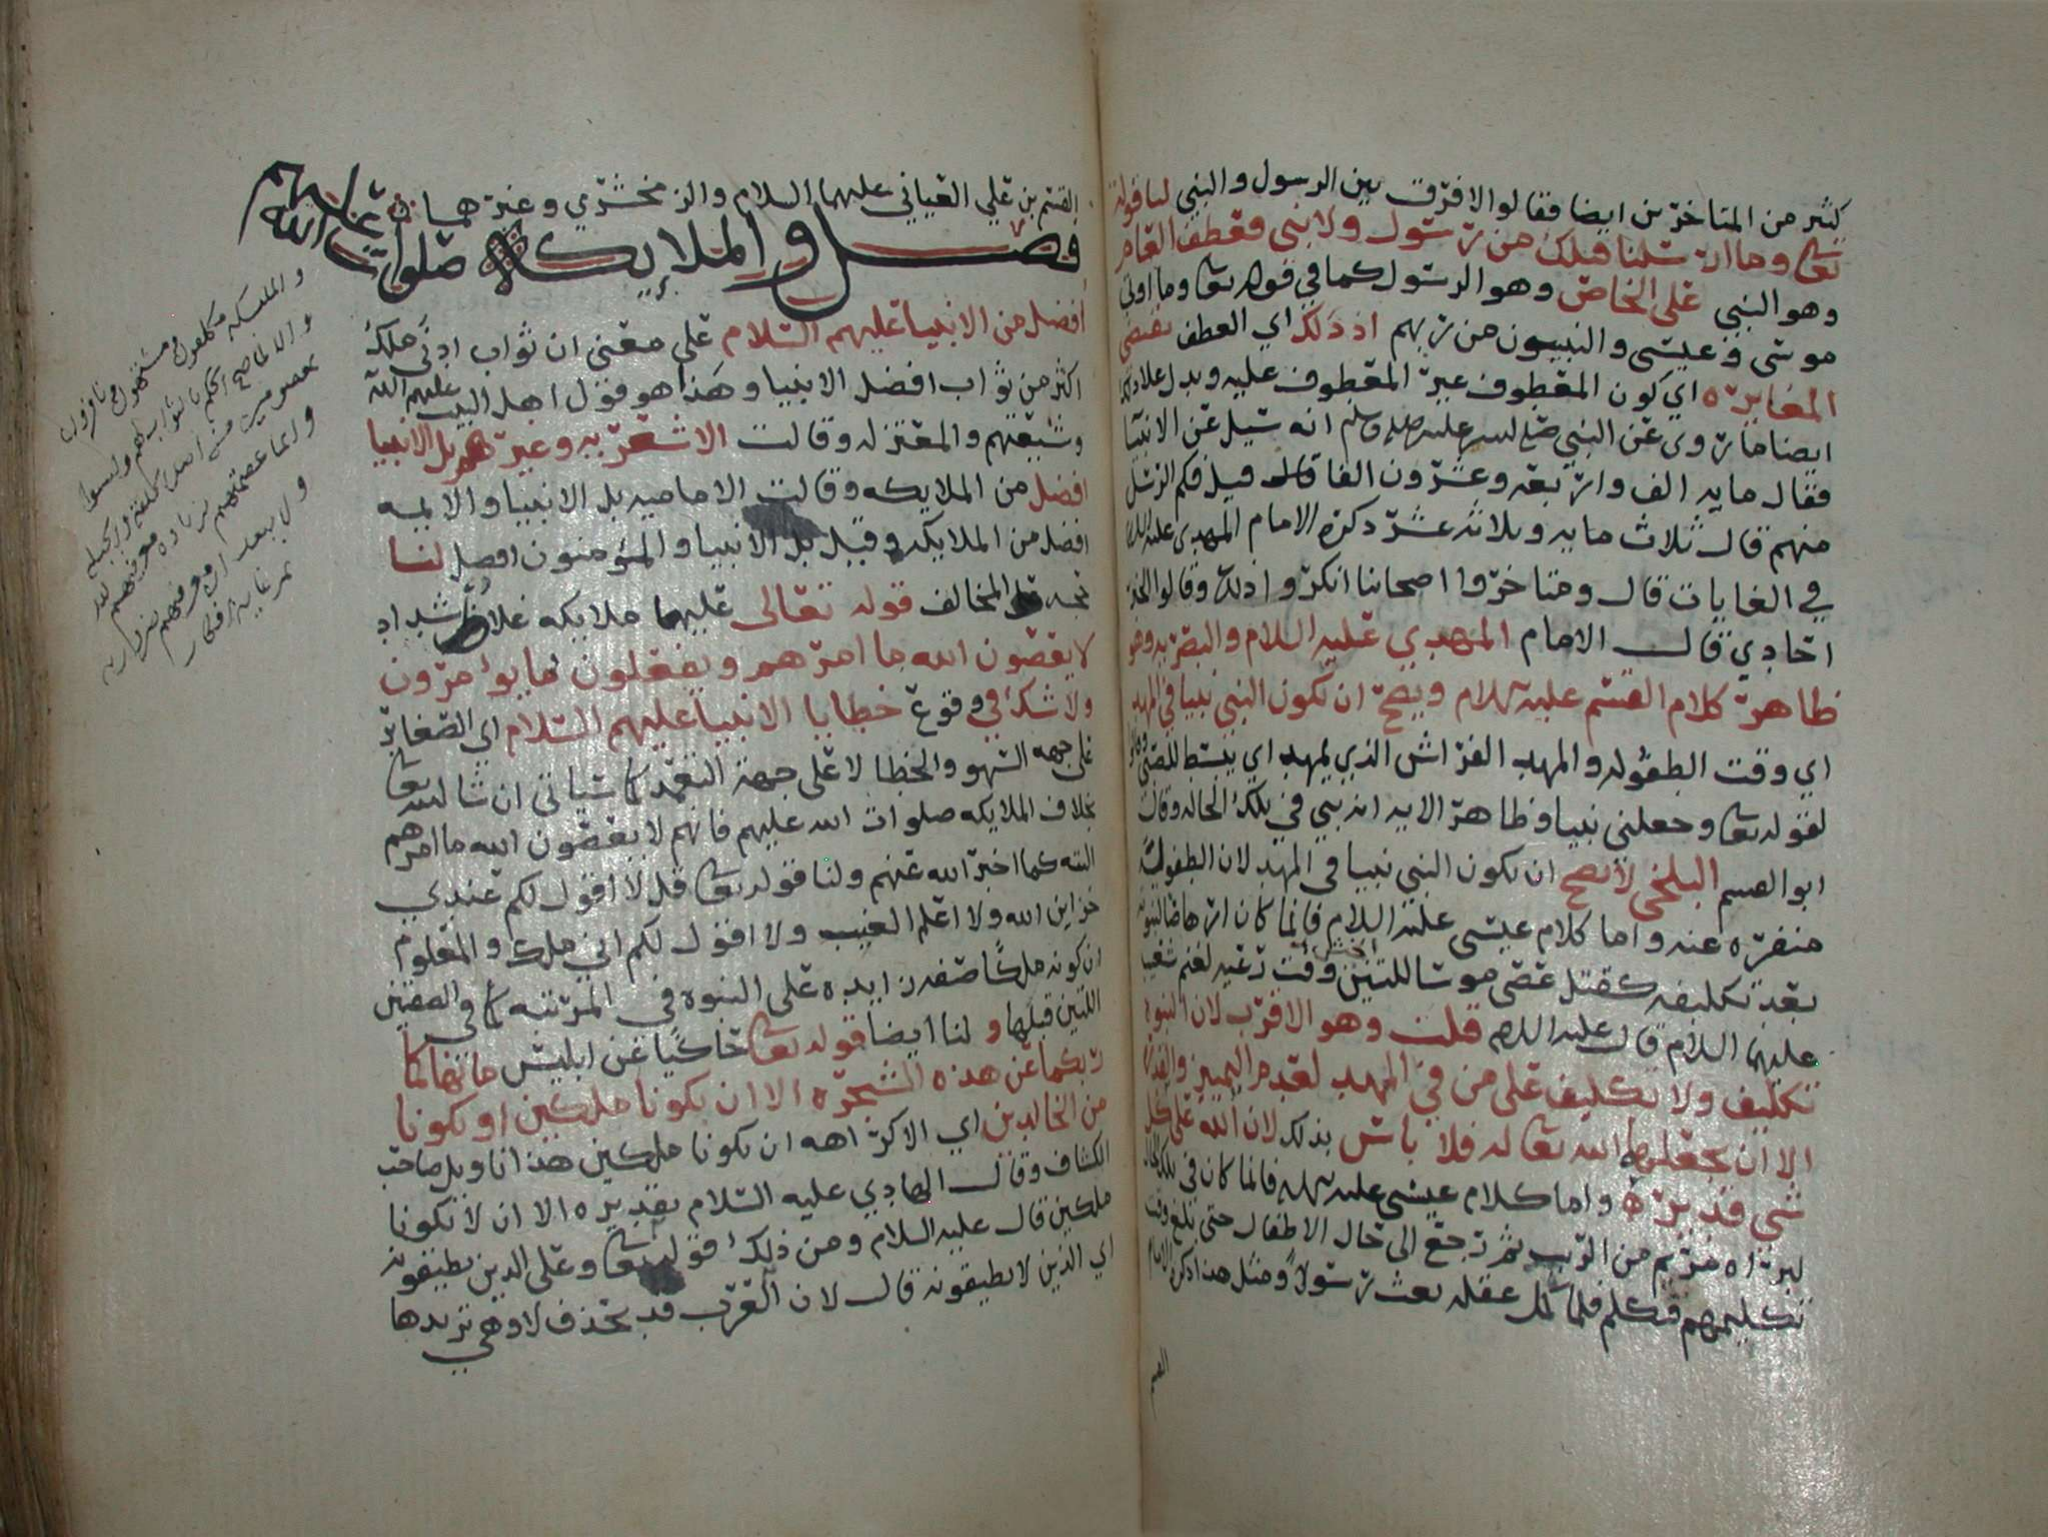 كثير من المتاخرين ايضا فقالوا لا فرق بين الرسول والنبي لنا قوله
تعالى وما ارسلنا قبلك من رسول ولا نبي فعطف العام
وهو النبي على الخاص وهو الرسول كما في قوله تعالى وما اوتي
موسى وعيسى والنبيون من ربهم اذ ذلك اي العطف يقتضي
المغايره اي كون المعطوف غير المعطوف عليه ويدل على ذلك
ايضا ما روي عن النبي صلى الله عليه وسلم انه سيل عن الانبيا
فقال مايه الف واربعه وعشرون الفا قال قيل فكم الرسل
منهم قال ثلاث مايه وثلاثه عشر ذكره الامام المهدي عليه السلام
في الغايات قال ومتاخروا اصحابنا انكروا ذلك وقالوا الخبر
احادي قال الامام المهدي عليه السلام والبصريه وهو
ظاهر كلام القسم عليه السلام ويصح ان يكون النبي نبيا في المهد
اي وقت الطفوله والمهد الفراش الذي يمهد اي يبسط للصبي
لقوله تعالى وجعلني نبيا وظاهر الايه انه نبي في تلك الحاله وقال
ابو القسم البلخي لا يصح ان يكون النبي نبيا في المهد لان الطفوليه
منفره عنه واما كلام عيسى عليه السلام فانما كان ارهاصا لنبوته
بعد تكليفه كقتل عصى موسى للتنين وقت رعيه لغنم شعيب
عليهما السلام قال عليه السلام قلت وهو الاقرب لان النبوه
تكليف ولا تكليف على من في المهد لعدم التمييز والقدره
الا ان يجعلهما الله تعالى له فلا باس بذلك لان الله على كل
شي قدير واما كلام عيسى عليه السلام فانما كان في تلك الحال
لبراه مريم من الريب ثم رجع الى حال الاطفال حتى بلغ وقت
تكليمهم فتكلم فلما كمل عقله بعث رسولا ومثل هذا ذكره الامام
القسم
القسم بن علي العياني عليهما السلام والزمخشري وغيرهما
فصل والملايكه صلوات الله عليهم
افضل من الانبيا عليهم السلام على معنى ان ثواب ادنى ملك
اكثر من ثواب افضل الانبيا وهذا هو قول اهل البيت عليهم السلام
وشيعتهم والمعتزله وقالت الاشعريه وغيرهم بل الانبيا
افضل من الملايكه وقالت الاماميه بل الانبيا والايمه
افضل من الملايكه وقيل بل الانبيا والمؤمنون افضل لنا
المخالف قوله تعالى عليها ملايكه غلاظ شداد
لا يعصون الله ما امرهم ويفعلون ما يؤمرون
ولا شك في وقوع خطايا الانبيا عليهم السلام اي الصغاير
على جهه السهو والخطا لا على جهة التعمد كما سياتي ان شا الله تعالى
بخلاف الملايكه صلوات الله عليهم فانهم لا يعصون الله ما امرهم
البته كما اخبر الله عنهم ولنا قوله تعالى قل لا اقول لكم عندي
خزاين الله ولا اعلم الغيب ولا اقول لكم اني ملك والمعلوم
ان كونه ملكا صفه زايده على النبوه في المرتبه كما في الصفتين
اللتين قبلها ولنا ايضا قوله تعالى حاكيا عن ابليس ما نهاكما
ربكما عن هذه الشجره الا ان تكونا ملكين او تكونا
من الخالدين اي الا كراهه ان تكونا ملكين هذا تاويل صاحب
الكشاف وقال الهادي عليه السلام تقديره الا ان لا تكونا
ملكين قال عليه السلام ومن ذلك قوله تعالى وعلى الذين يطيقونه
اي الذين لا يطيقونه قال لان العرب قد تحذف لا وهي تريدها
والملئكه مكلفون